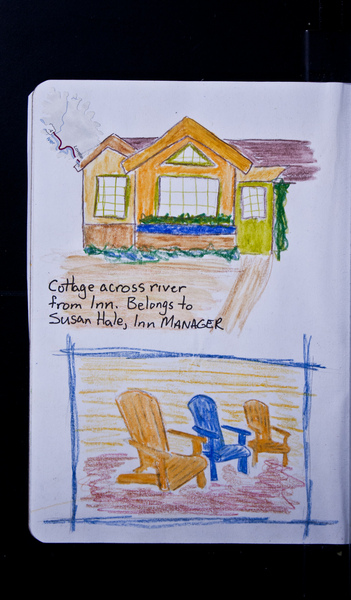 Cottage across river
from Inn. Belongs to
Susan Hale, Inn MANAGER